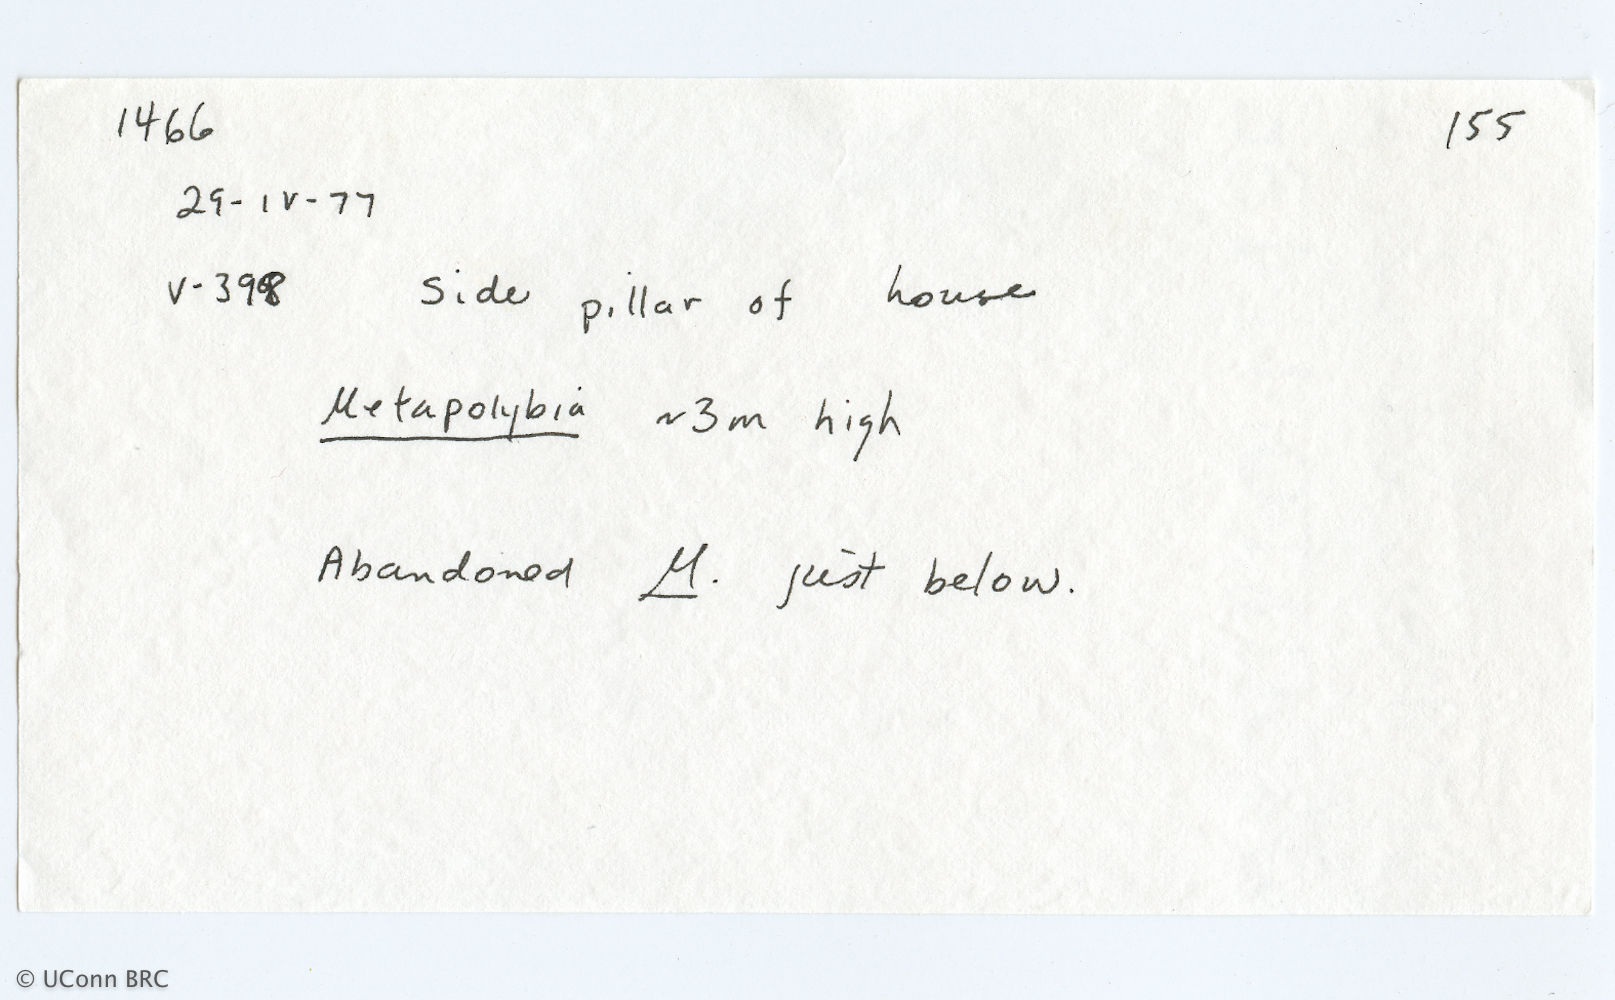 1466 155
29-IV-77
V-398 Side pillar of house
Metapolybia ~3m high
Abandoned M. just below.
© UConn BRC